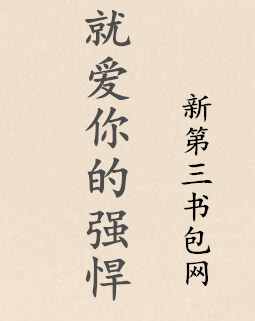 就爱你的强悍
新第三书包网